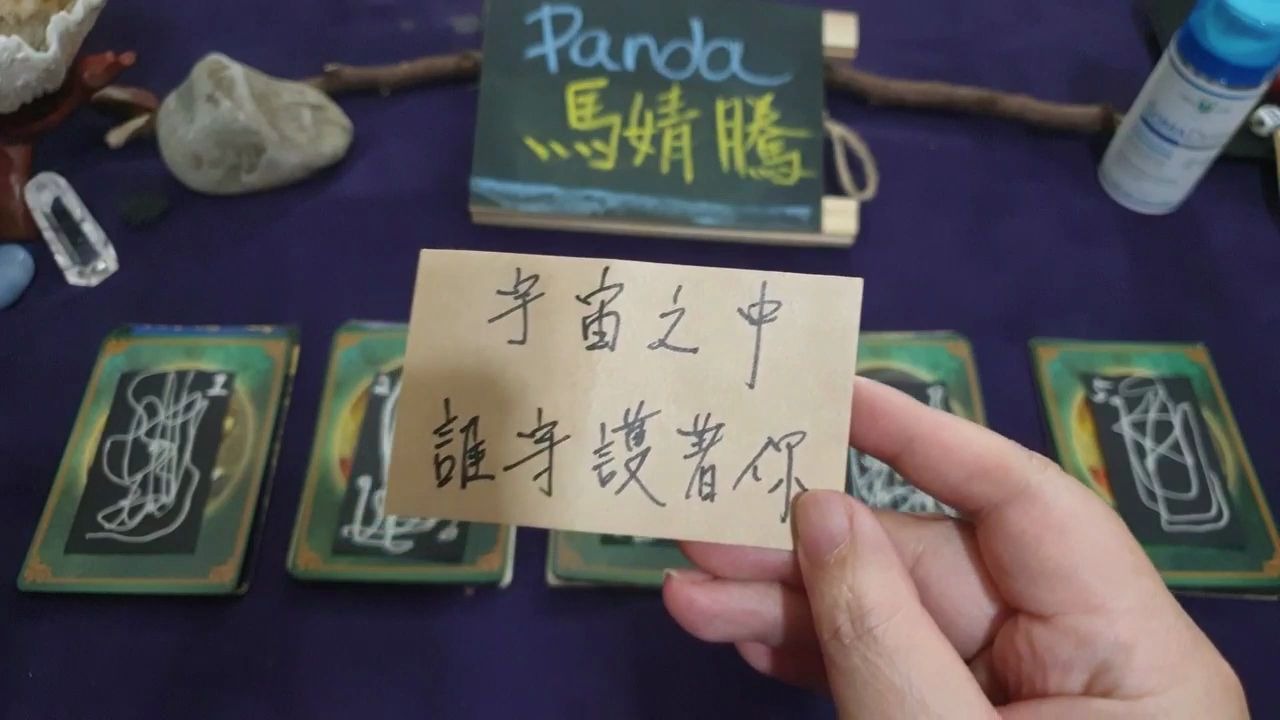 Panda
馬婧騰
宇宙之中
誰守護著你
1
2
5.